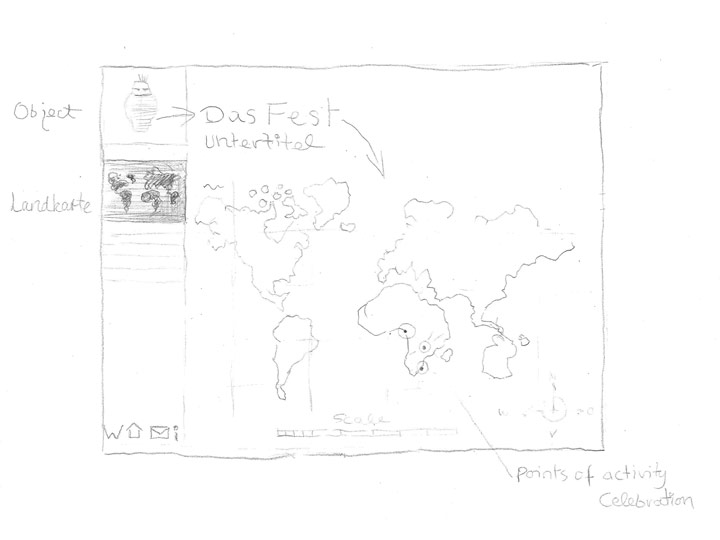 Object
Das Fest
untertitel
Landkarte
Scale
W
i
Points of activity
Celebration